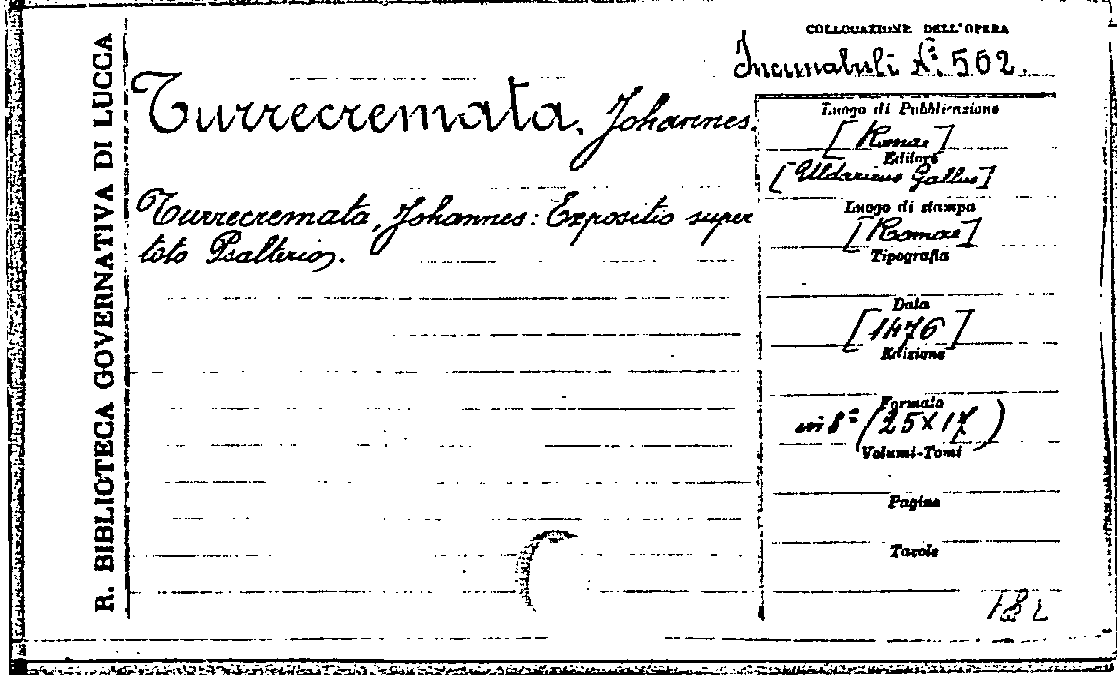 R. BIBLIOTECA GOVERNATIVA DI LUCCA
COLLOCAZIONE DELL'OPERA
Incunabuli N.º 502.
Turrecremata, Johannes.
Turrecremata, Johannes: Expositio super
toto Psalterio.
Luogo di Pubblicazione
[Romae]
Editore
[Uldaricus Gallus]
Luogo di stampa
[Romae]
Tipografia
Data
[1476]
Edizione
Formato
in 8º (25x17)
Volumi-Tomi
Pagine
Tavole